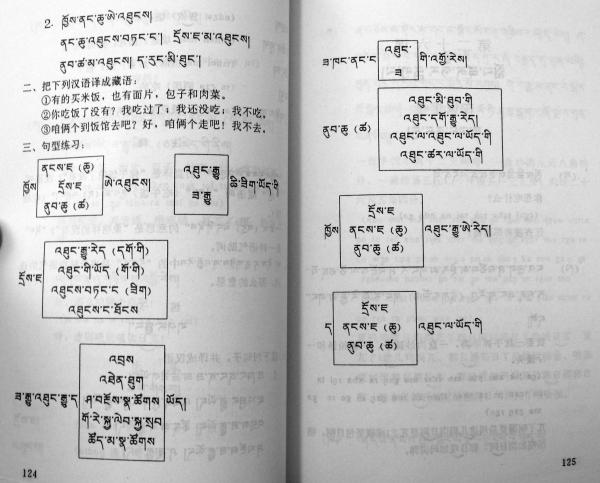 2. ཁྱོས་ནང་ཆུ་ཨེ་འཐུངས།
ནང་ཆུ་འཐུངས་བཏང་ང་། རྡོས་ཇ་མ་འཐུངས།
ནུབ་ཚ་མ་འཐུངས། ད་རུང་མི་ཐུང་།
二、把下列汉语译成藏语：
①有的买米饭，也有面片，包子和肉菜。
②你吃饭了没有？我吃过了；我还没吃；我不吃。
③咱俩个到饭馆去吧？好，咱俩个走吧！我不去。
三、句型练习：
ནངས་ཇ（ཆུ）
ཁྱོས རྡོས་ཇ ཨེ་འཐུངས།
ནུབ་ཆུ（ཚ）
འཐུང་རྒྱུ
ཟ་རྒྱུ
ཆི་ཟིག་ཡོད་གི
འཐུང་རྒྱུ་རེད（དགོ་གི）
རྡོས་ཇ འཐུང་གི་ཡོད（གོ་གི）
འཐུངས་བཏང་ང（ཟིག）
འཐུངས་ང་ཐོངས
འབྲས
འཐེན་ཐུག
ཟ་རྒྱུ་འཐུང་རྒྱུ་ད ཤ་བརྡོས་སྣ་ཚོགས ཡོད།
གོ་རེ་སྐྱ་ལེབ་སྐྱ་སྲབ
ཚོད་མ་སྣ་ཚོགས
124
ཟ་ཁང་ནང་ང འཐུང་ གི་འགྲོ་རེས།
ཟ
འཐུང་མི་ཐུབ་གི
ནུབ་ཆུ（ཚ） འཐུང་དགོ་རྒྱུ་རེད།
འཐུང་ལ་འཐུང་ལ་ཡོད་གི
འཐུང་ཚར་ལ་ཡོད་གི
རྡོས་ཇ
ཁྱོས ནངས་ཇ（ཆུ） འཐུང་རྒྱུ་ཨེ་རེད།
ནུབ་ཆུ（ཚ）
རྡོས་ཇ
ད ནངས་ཇ（ཆུ） འཐུང་ལ་ཡོད་གི
ནུབ་ཆུ（ཚ）
125